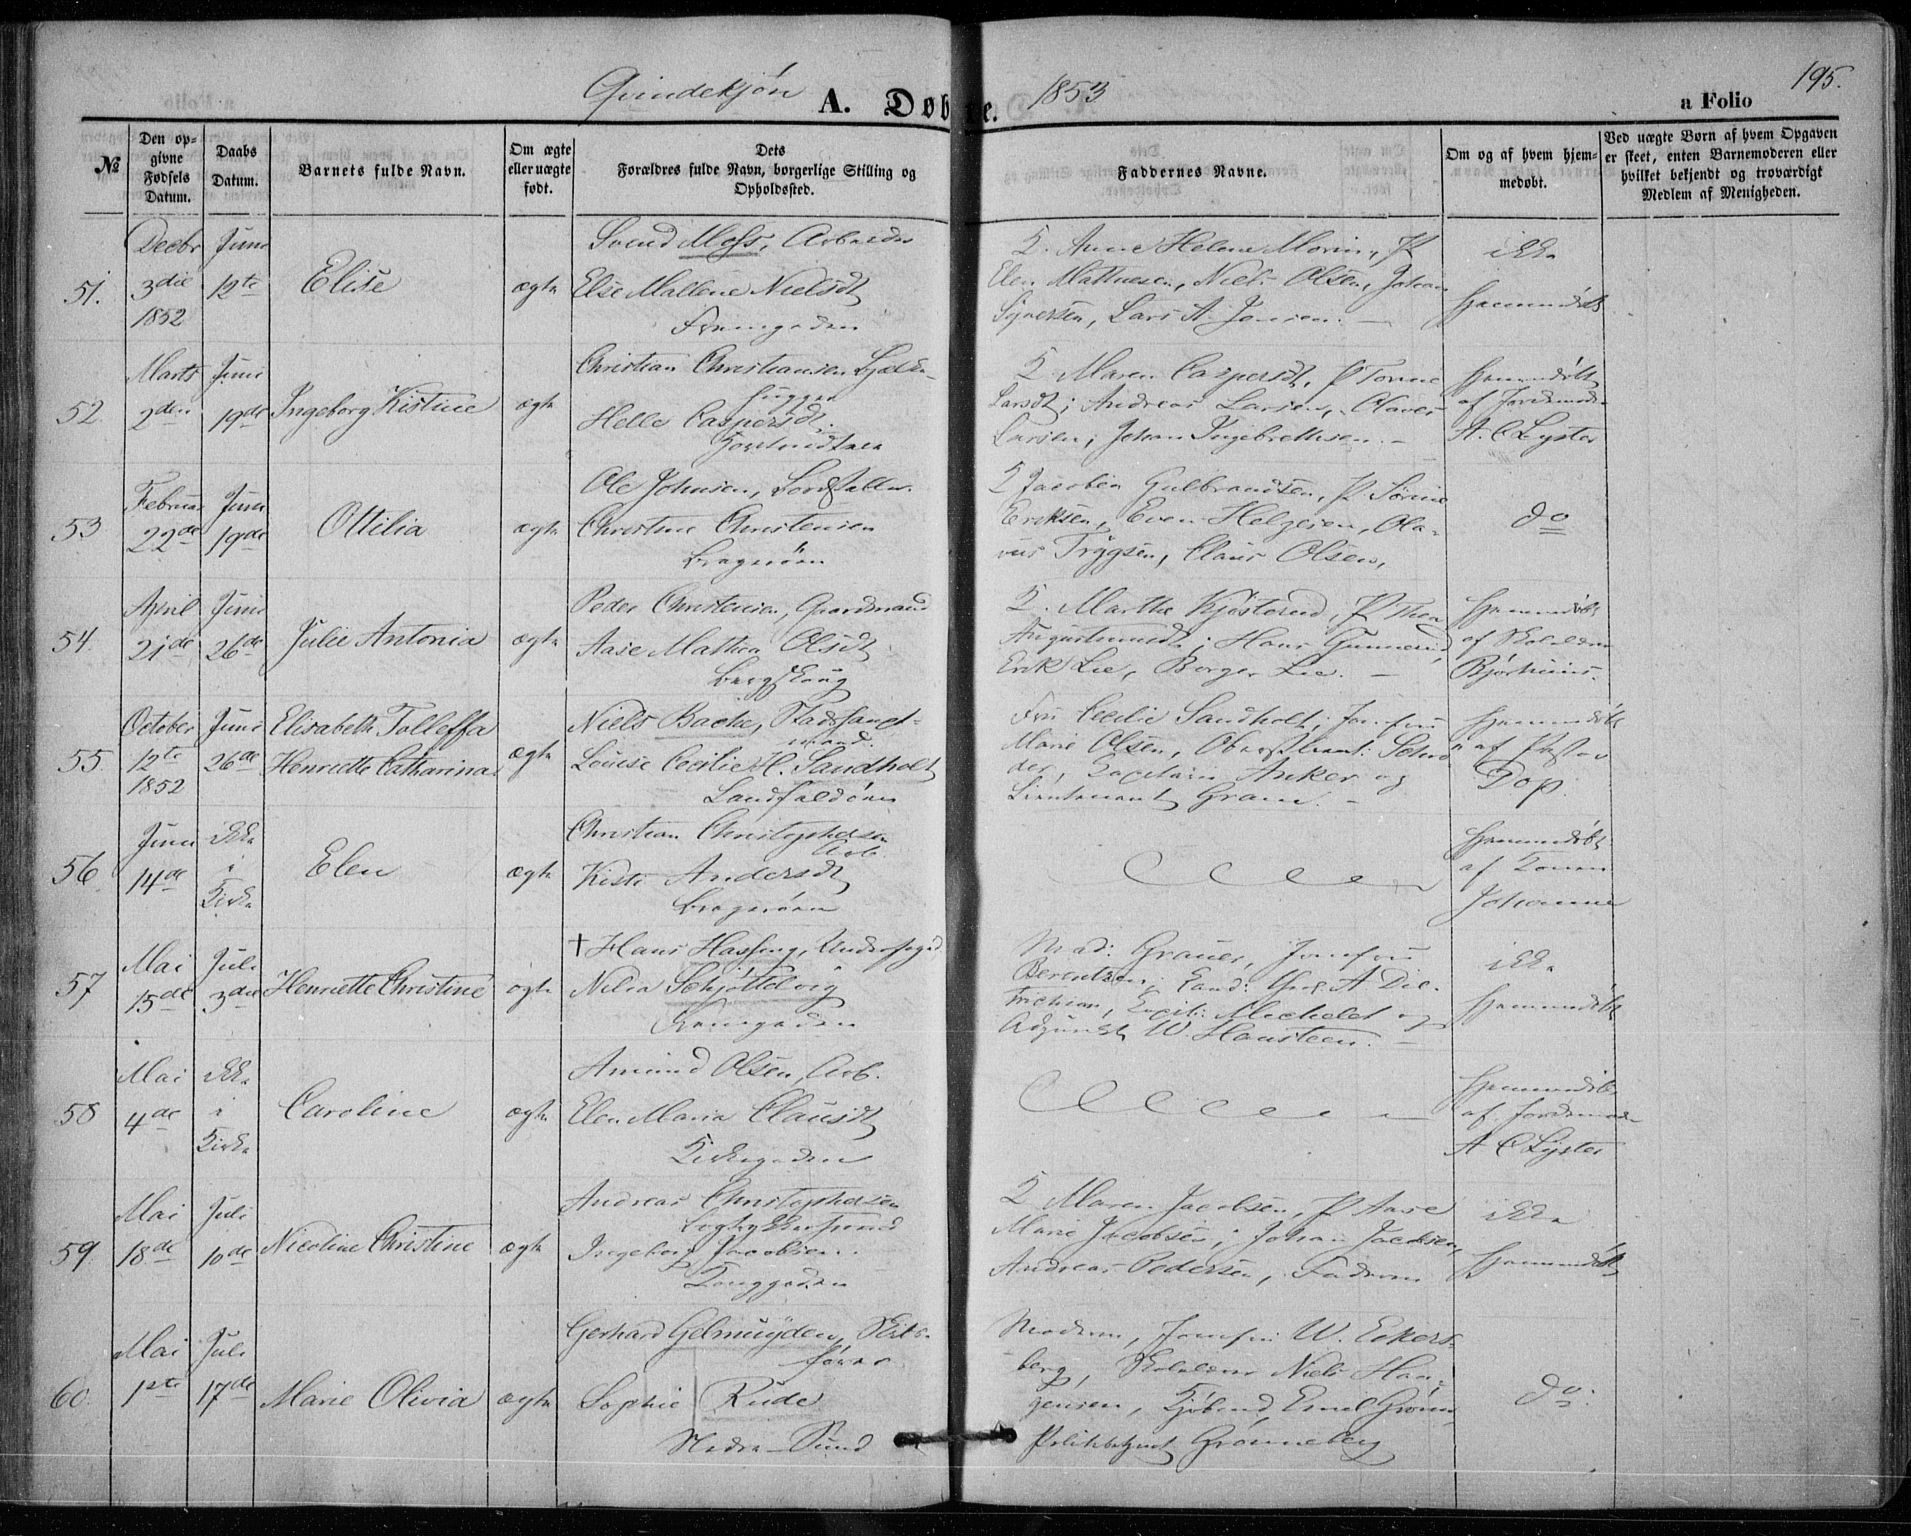 Qvindekjøn
A. Døbte.
1853
a Folio
195.
№
Den op-
givne
Fødsels
Datum.
Daabs
Datum.
Barnets fulde Navn.
Om ægte
eller uægte
født.
Dets
Forældres fulde Navn, borgerlige Stilling og
Opholdssted.
Faddernes Navne.
Om og af hvem hjem-
medøbt.
Ved uægte Børn af hvem Opgaven
er skeet, enten Barnemoderen eller
hvilket bekjendt og troværdigt
Medlem af Menigheden.
51.
Decbr
3die
1852
Juni
12te
Elise
ægte
Svend Moss, Arbeider
Else Mallene Nielsdt
Anne Helene Morin, P
Elen Mathiesen, Niels Olsen, Johan
Syversen, Lars A. Jensen.
ikke
hjemmedøbt
52
Marts
2den
Juni
19de
Ingeborg Kistine
ægte
Christian Christiansen
hugger
Helle Caspersdt.
Maren Caspersdt, P Torine
Larsdt; Andreas Larsen, Olaves
Larsen; Johan Ingebrethsen.
hjemmedøbt
af Jordemoder
A. C Lyster
53
Februar
22de
Juni
19de
Ottilia
ægte
Ole Johnsen,
Christine Christensen
Bragerøen
Jacobin Gulbrandsen, P Sørine
Eriksen, Even Helgesen, Ola-
vus Trygsen, Claus Olsen,
do
54.
April
21de
Juni
26de
Julie Antonia
ægte
Peder Christensen, Gaardmand
Aase Mathea Olsdt
Bergskoug
Marthe Kjøsterud, P Thea
Hans Gunnerud,
Erik Lie, Borger Lie.
hjemmedøbt
af Skolelærer
Bjørhuus.
55.
October
12te
1852
Juni
26de
Elisabeth Tolleffa
Henriette Catharina
ægte
Niels Backe, Stadshaupt-
mand.
Louise Cecilie H. Sandholt
Landfaldøen
Fru Cecilie Sandholt, Jomfru
Marie Olsen, Oberstlieut: Schrø-
der, Capitain Anker og
Lieutenant Gram.
hjemmedøbt
af Pastor
Dop.
56
Juni
14de
ikke
i
Kirke
Elen
ægte
Christian Christophersen
Arb.
Kisti Andersdt
Bragerøen
hjemmedøbt
af Konen
Johanne
57
Mai
15de
Juli
3die
Henriette Christine
ægte
† Hans Hassing, Underfoged
Nilia Schjøttelvig
Mad: Grauer, Jomfru
Berentzen; Cand: A Die-
trichson, Capit: Michelet og
Adjunct W. Hansteen.
ikke
hjemmedøbt
58
Mai
4de
ikke
i
Kirke
Caroline
ægte
Amund Olsen, Arb.
Elen Maria Clausdt
Kirkegaden
hjemmedøbt
af Jordemoder
A C Lyster
59.
Mai
18de
Juli
10de
Nicoline Christine
ægte
Andreas Christophersen
Ingeborg Jacobsen.
Konggaden
Maren Jacobsen, P Aase
Marie Jacobsen; Johan Jacobsen,
Andreas Pedersen, Faderen
ikke
hjemmedøbt
60.
Mai
1ste
Juli
17de
Marie Olivia
ægte
Gerhard Gelmuyden, Skibs-
fører
Sophie Rude
Nedre Sund
Moderen, Jomfru W. Eckers-
berg, Skolelærer Niels Haa-
gensen, Kjøbmd Emil Grønn,
Politibetjent Grønneberg
do.